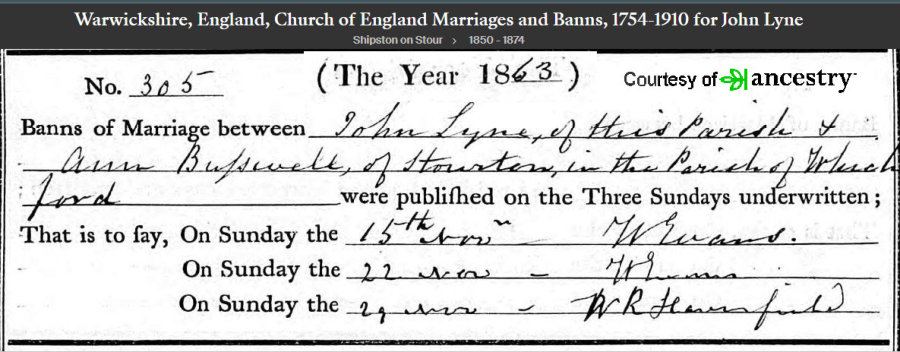 Warwickshire, England, Church of England Marriages and Banns, 1754-1910 for John Lyne
Shipston on Stour > 1850 - 1874
No. 305 (The Year 1863) Courtesy of ancestry
Banns of Marriage between John Lyne, of this Parish &
Ann Bußwell, of Stourton, in the Parish of Which
ford were publiſhed on the Three Sundays underwritten;
That is to ſay, On Sunday the 15th Novr W Evans.
On Sunday the 22 Nov – W Evans
On Sunday the 29 Nov – W R